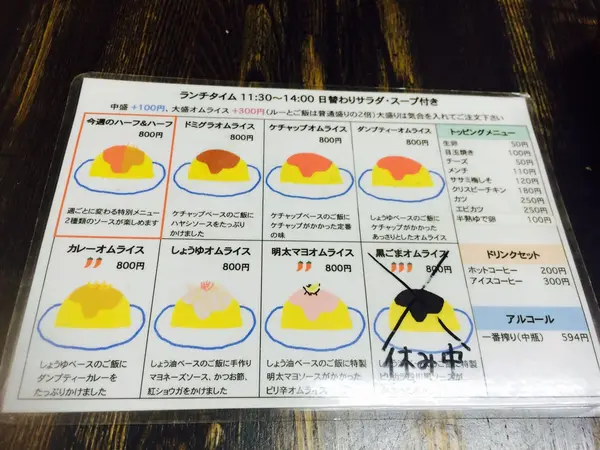 ランチタイム 11:30～14:00 日替わりサラダ・スープ付き
中盛 +100円、大盛オムライス +300円(ルーとご飯は普通盛りの2倍)大盛りは気合を入れてご注文下さい
今週のハーフ&ハーフ
800円
週ごとに変わる特別メニュー
2種類のソースが楽しめます
ドミグラオムライス
800円
ケチャップベースのご飯に
ハヤシソースをたっぷり
かけました
ケチャップオムライス
800円
ケチャップベースのご飯に
ケチャップがかかった定番
の味
ダンプティーオムライス
800円
しょうゆベースのご飯に
ケチャップがかかった
あっさりとしたオムライス
トッピングメニュー
生卵 50円
目玉焼き 100円
チーズ 50円
メンチ 110円
ササミ梅しそ 120円
クリスピーチキン 180円
カツ 250円
エビカツ 250円
半熟ゆで卵 100円
カレーオムライス
800円
しょうゆベースのご飯に
ダンプティカレーを
たっぷりかけました
しょうゆオムライス
800円
しょう油ベースのご飯に手作り
マヨネーズソース、かつお節、
紅ショウガをかけました
明太マヨオムライス
800円
しょう油ベースのご飯に特製
明太マヨソースがかかった
ピリ辛オムライス
黒ごまオムライス
800円
休み中
しょう油ベースのご飯に特製
ドリンクセット
ホットコーヒー 200円
アイスコーヒー 300円
アルコール
一番搾り(中瓶) 594円